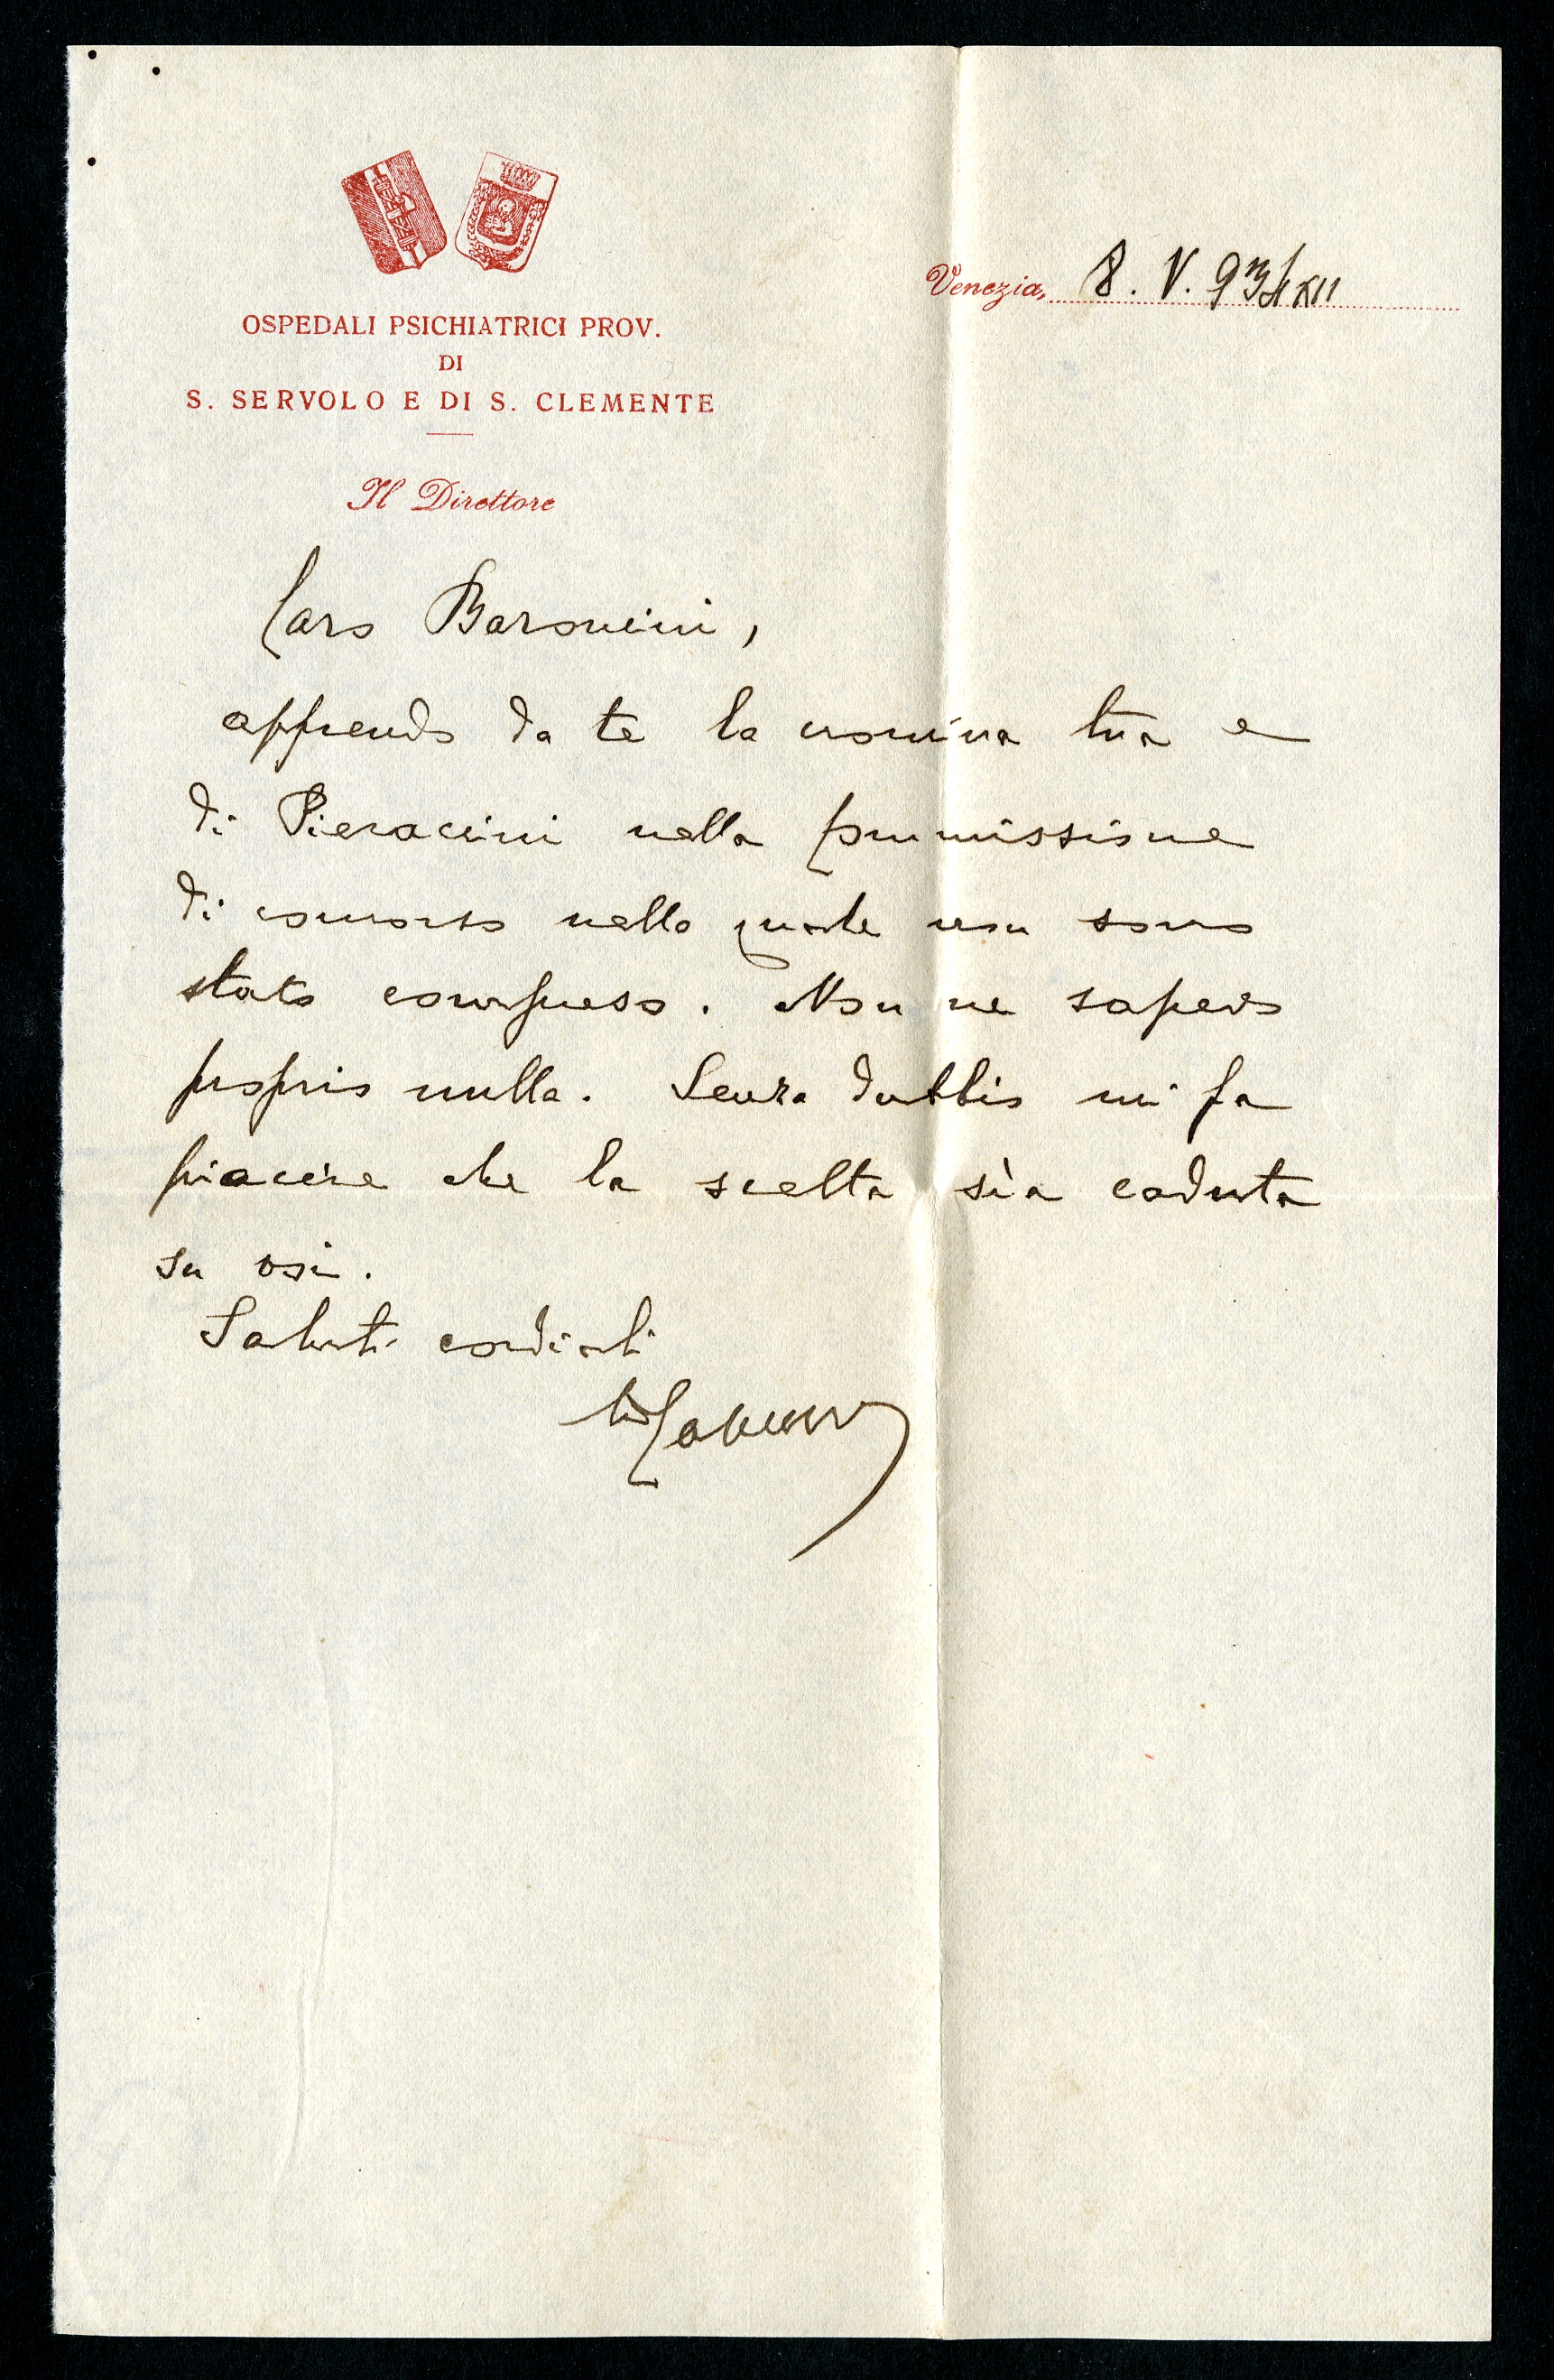 OSPEDALI PSICHIATRICI PROV.
DI
S. SERVOLO E DI S. CLEMENTE
Il Direttore
Venezia, 8. V. 934 XII
Caro Baroncini,
apprendo da te la nomina tua e
di Pieraccini nella commissione
di concorso nella quale non sono
stato compreso. Non ne sapevo
proprio nulla. Senza dubbio mi fa
piacere che la scelta sia caduta
su voi.
Saluti cordiali